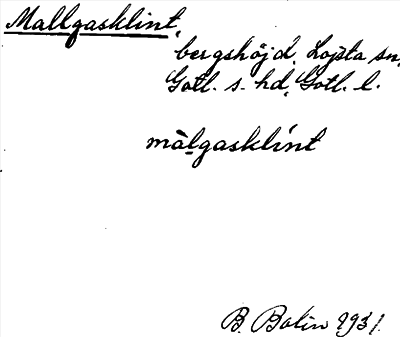 Mallgasklint,
bergshöjd, Lojsta sn,
Gotl. s. hd, Gotl. l.
màlgasklínt
B. Bolin 1931.